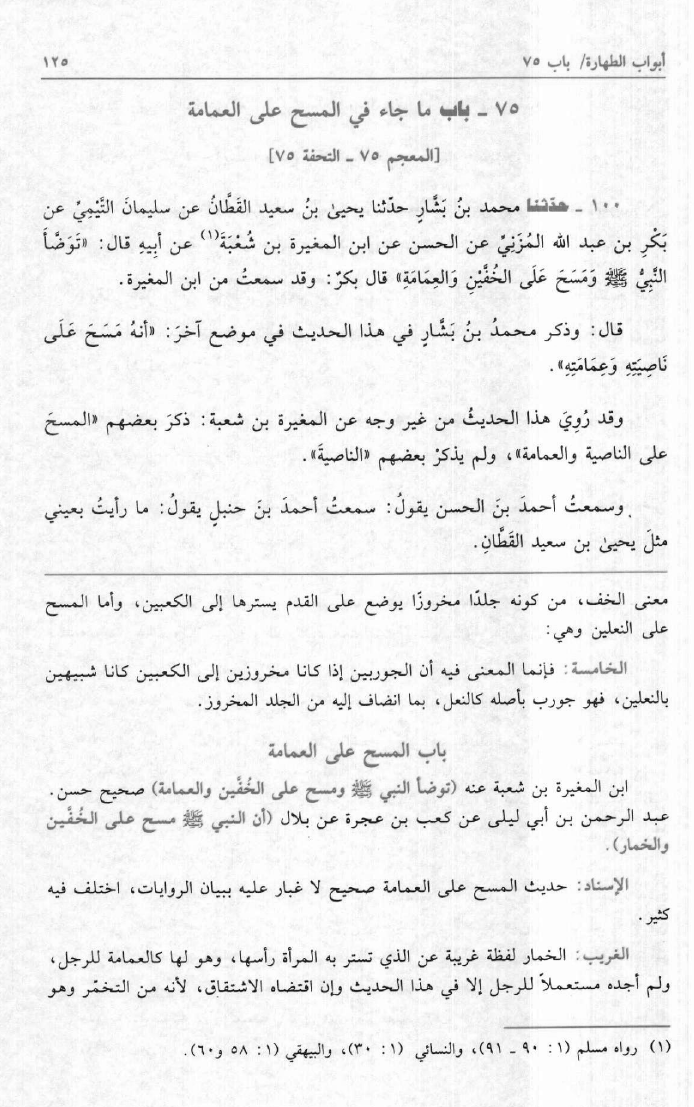 أبواب الطهارة/ باب ٧٥ ١٢٥
٧٥ ـ باب ما جاء في المسح على العمامة
[المعجم ٧٥ ـ التحفة ٧٥]
١٠٠ ـ حدّثنا محمد بنُ بَشَّارٍ حدّثنا يحيىٰ بنُ سعيد القَطَّانُ عن سليمانَ التَّيْمِيِّ عن
بَكْرِ بن عبد الله المُزَنِيِّ عن الحسن عن ابن المغيرة بن شُعْبَةَ(١) عن أبيهِ قال: «تَوَضَّأَ
النَّبِيُّ ﷺ وَمَسَحَ عَلَى الخُفَّيْنِ وَالعِمَامَةِ» قال بكرٌ: وقد سمعتُ من ابن المغيرة.
قال: وذكر محمدُ بنُ بَشَّارٍ في هذا الحديث في موضع آخرَ: «أنهُ مَسَحَ عَلَى
نَاصِيَتِهِ وَعِمَامَتِهِ».
وقد رُوِيَ هذا الحديثُ من غير وجه عن المغيرة بن شعبة: ذكرَ بعضهم «المسحَ
على الناصية والعمامة»، ولم يذكرْ بعضهم «الناصيةَ».
وسمعتُ أحمدَ بنَ الحسن يقولُ: سمعتُ أحمدَ بنَ حنبلٍ يقولُ: ما رأيتُ بعيني
مثلَ يحيىٰ بن سعيد القَطَّانِ.
معنى الخف، من كونه جلدًا مخروزًا يوضع على القدم يسترها إلى الكعبين، وأما المسح
على النعلين وهي:
الخامسة: فإنما المعنى فيه أن الجوربين إذا كانا مخروزين إلى الكعبين كانا شبيهين
بالنعلين، فهو جورب بأصله كالنعل، بما انضاف إليه من الجلد المخروز.
باب المسح على العمامة
ابن المغيرة بن شعبة عنه (توضأ النبي ﷺ ومسح على الخُفَّين والعمامة) صحيح حسن.
عبد الرحمن بن أبي ليلى عن كعب بن عجرة عن بلال (أن النبي ﷺ مسح على الخُفَّين
والخمار).
الإسناد: حديث المسح على العمامة صحيح لا غبار عليه ببيان الروايات، اختلف فيه
كثير.
الغريب: الخمار لفظة غريبة عن الذي تستر به المرأة رأسها، وهو لها كالعمامة للرجل،
ولم أجده مستعملاً للرجل إلا في هذا الحديث وإن اقتضاه الاشتقاق، لأنه من التخمّر وهو
(١) رواه مسلم (١: ٩٠ ـ ٩١)، والنسائي (١: ٣٠)، والبيهقي (١: ٥٨ و٦٠).